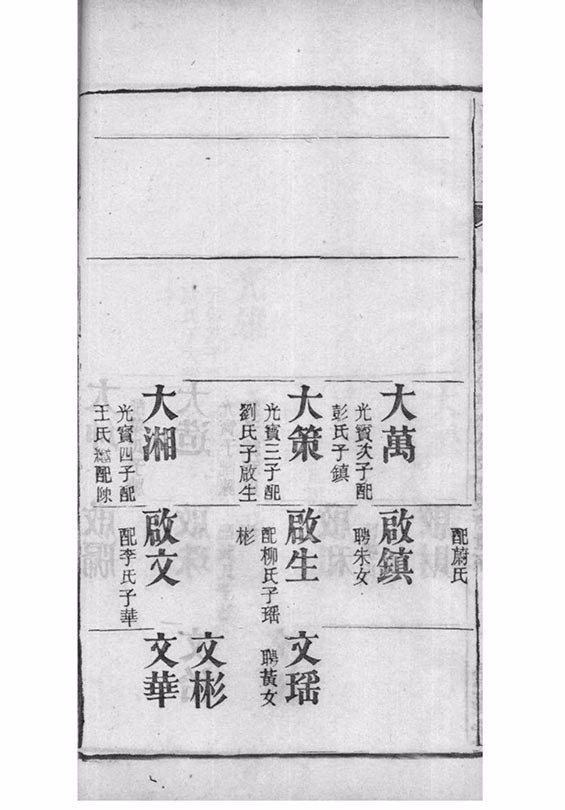 大萬
光寶次子配
彭氏子鎮
大策
光寶三子配
劉氏子啟生
大湘
光寶四子配
王氏繼配陳
配蔚氏
啟鎮
聘朱女
啟生
配柳氏子瑶
彬
啟文
配李氏子華
文瑶
聘黃女
文彬
文華